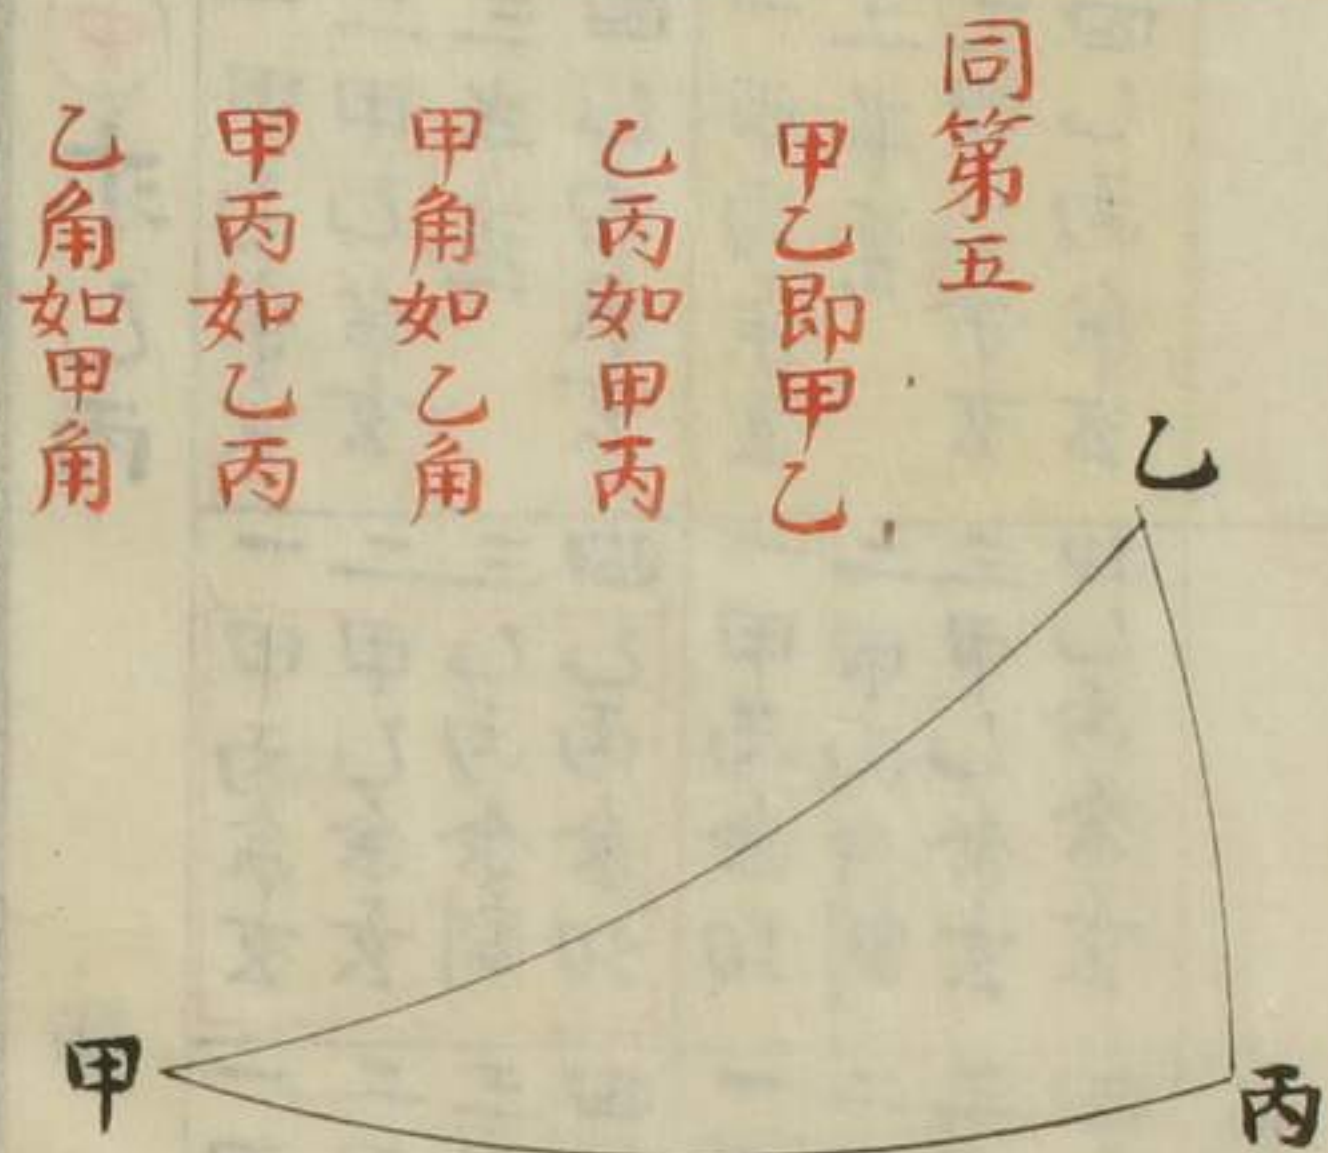 同第五
甲乙即甲乙
乙丙如甲丙
甲角如乙角
甲丙如乙丙
乙角如甲角
乙
甲
丙